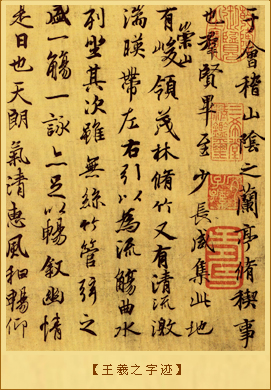 于會稽山陰之蘭亭脩禊事
也羣賢畢至少長咸集此地
有崇山峻領茂林脩竹又有清流激
湍暎帶左右引以為流觴曲水
列坐其次雖無絲竹管弦之
盛一觴一詠亦足以暢敘幽情
是日也天朗氣清惠風和暢仰
【王羲之字迹】